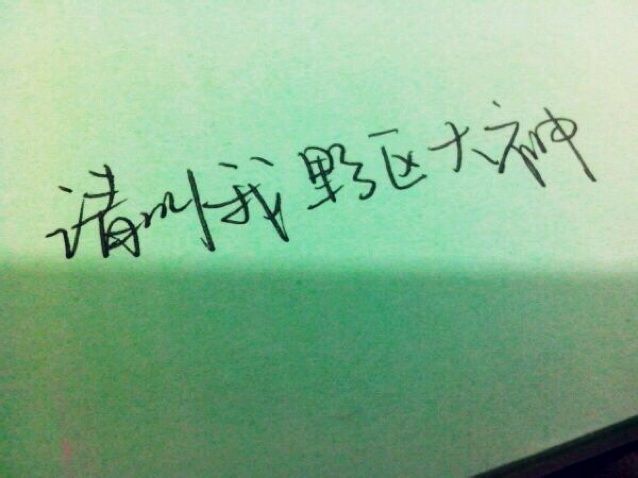 请叫我野区大神